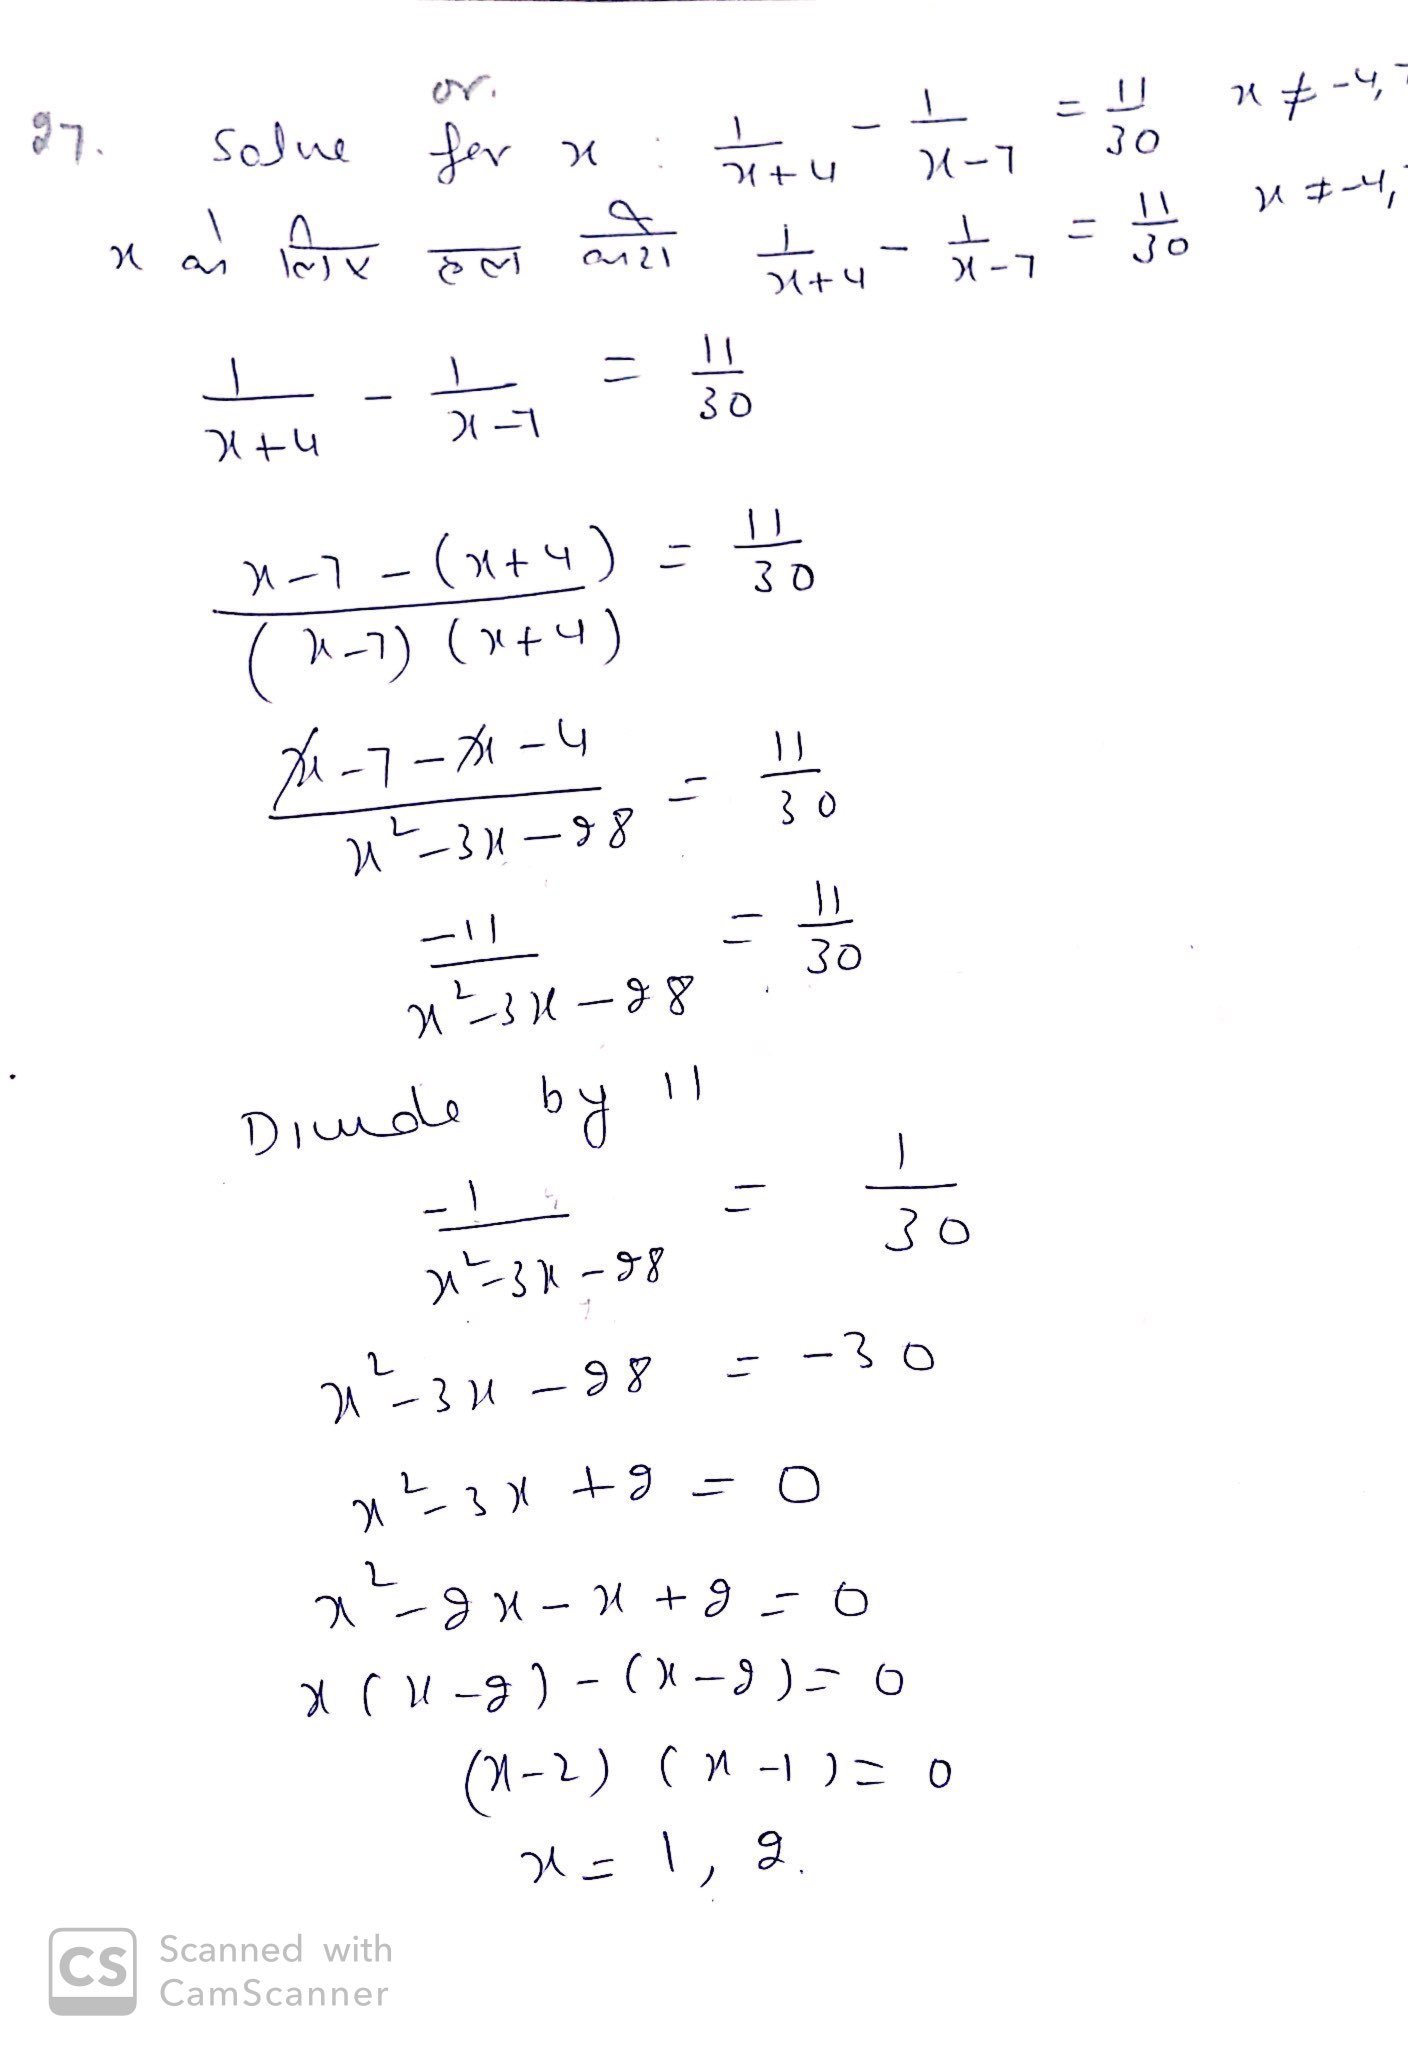 or.
27. Solve for x : 1/(x+4) - 1/(x-7) = 11/30 x ≠ -4,
x के लिए हल करो 1/(x+4) - 1/(x-7) = 11/30 x ≠ -4,
1/(x+4) - 1/(x-7) = 11/30
(x-7-(x+4))/((x-7)(x+4)) = 11/30
(x-7-x-4)/(x²-3x-28) = 11/30
-11/(x²-3x-28) = 11/30
Divide by 11
-1/(x²-3x-28) = 1/30
x²-3x-28 = -30
x²-3x+2 = 0
x²-2x-x+2=0
x(x-2)-(x-2)=0
(x-2)(x-1)=0
x=1, 2.
CS Scanned with
CamScanner